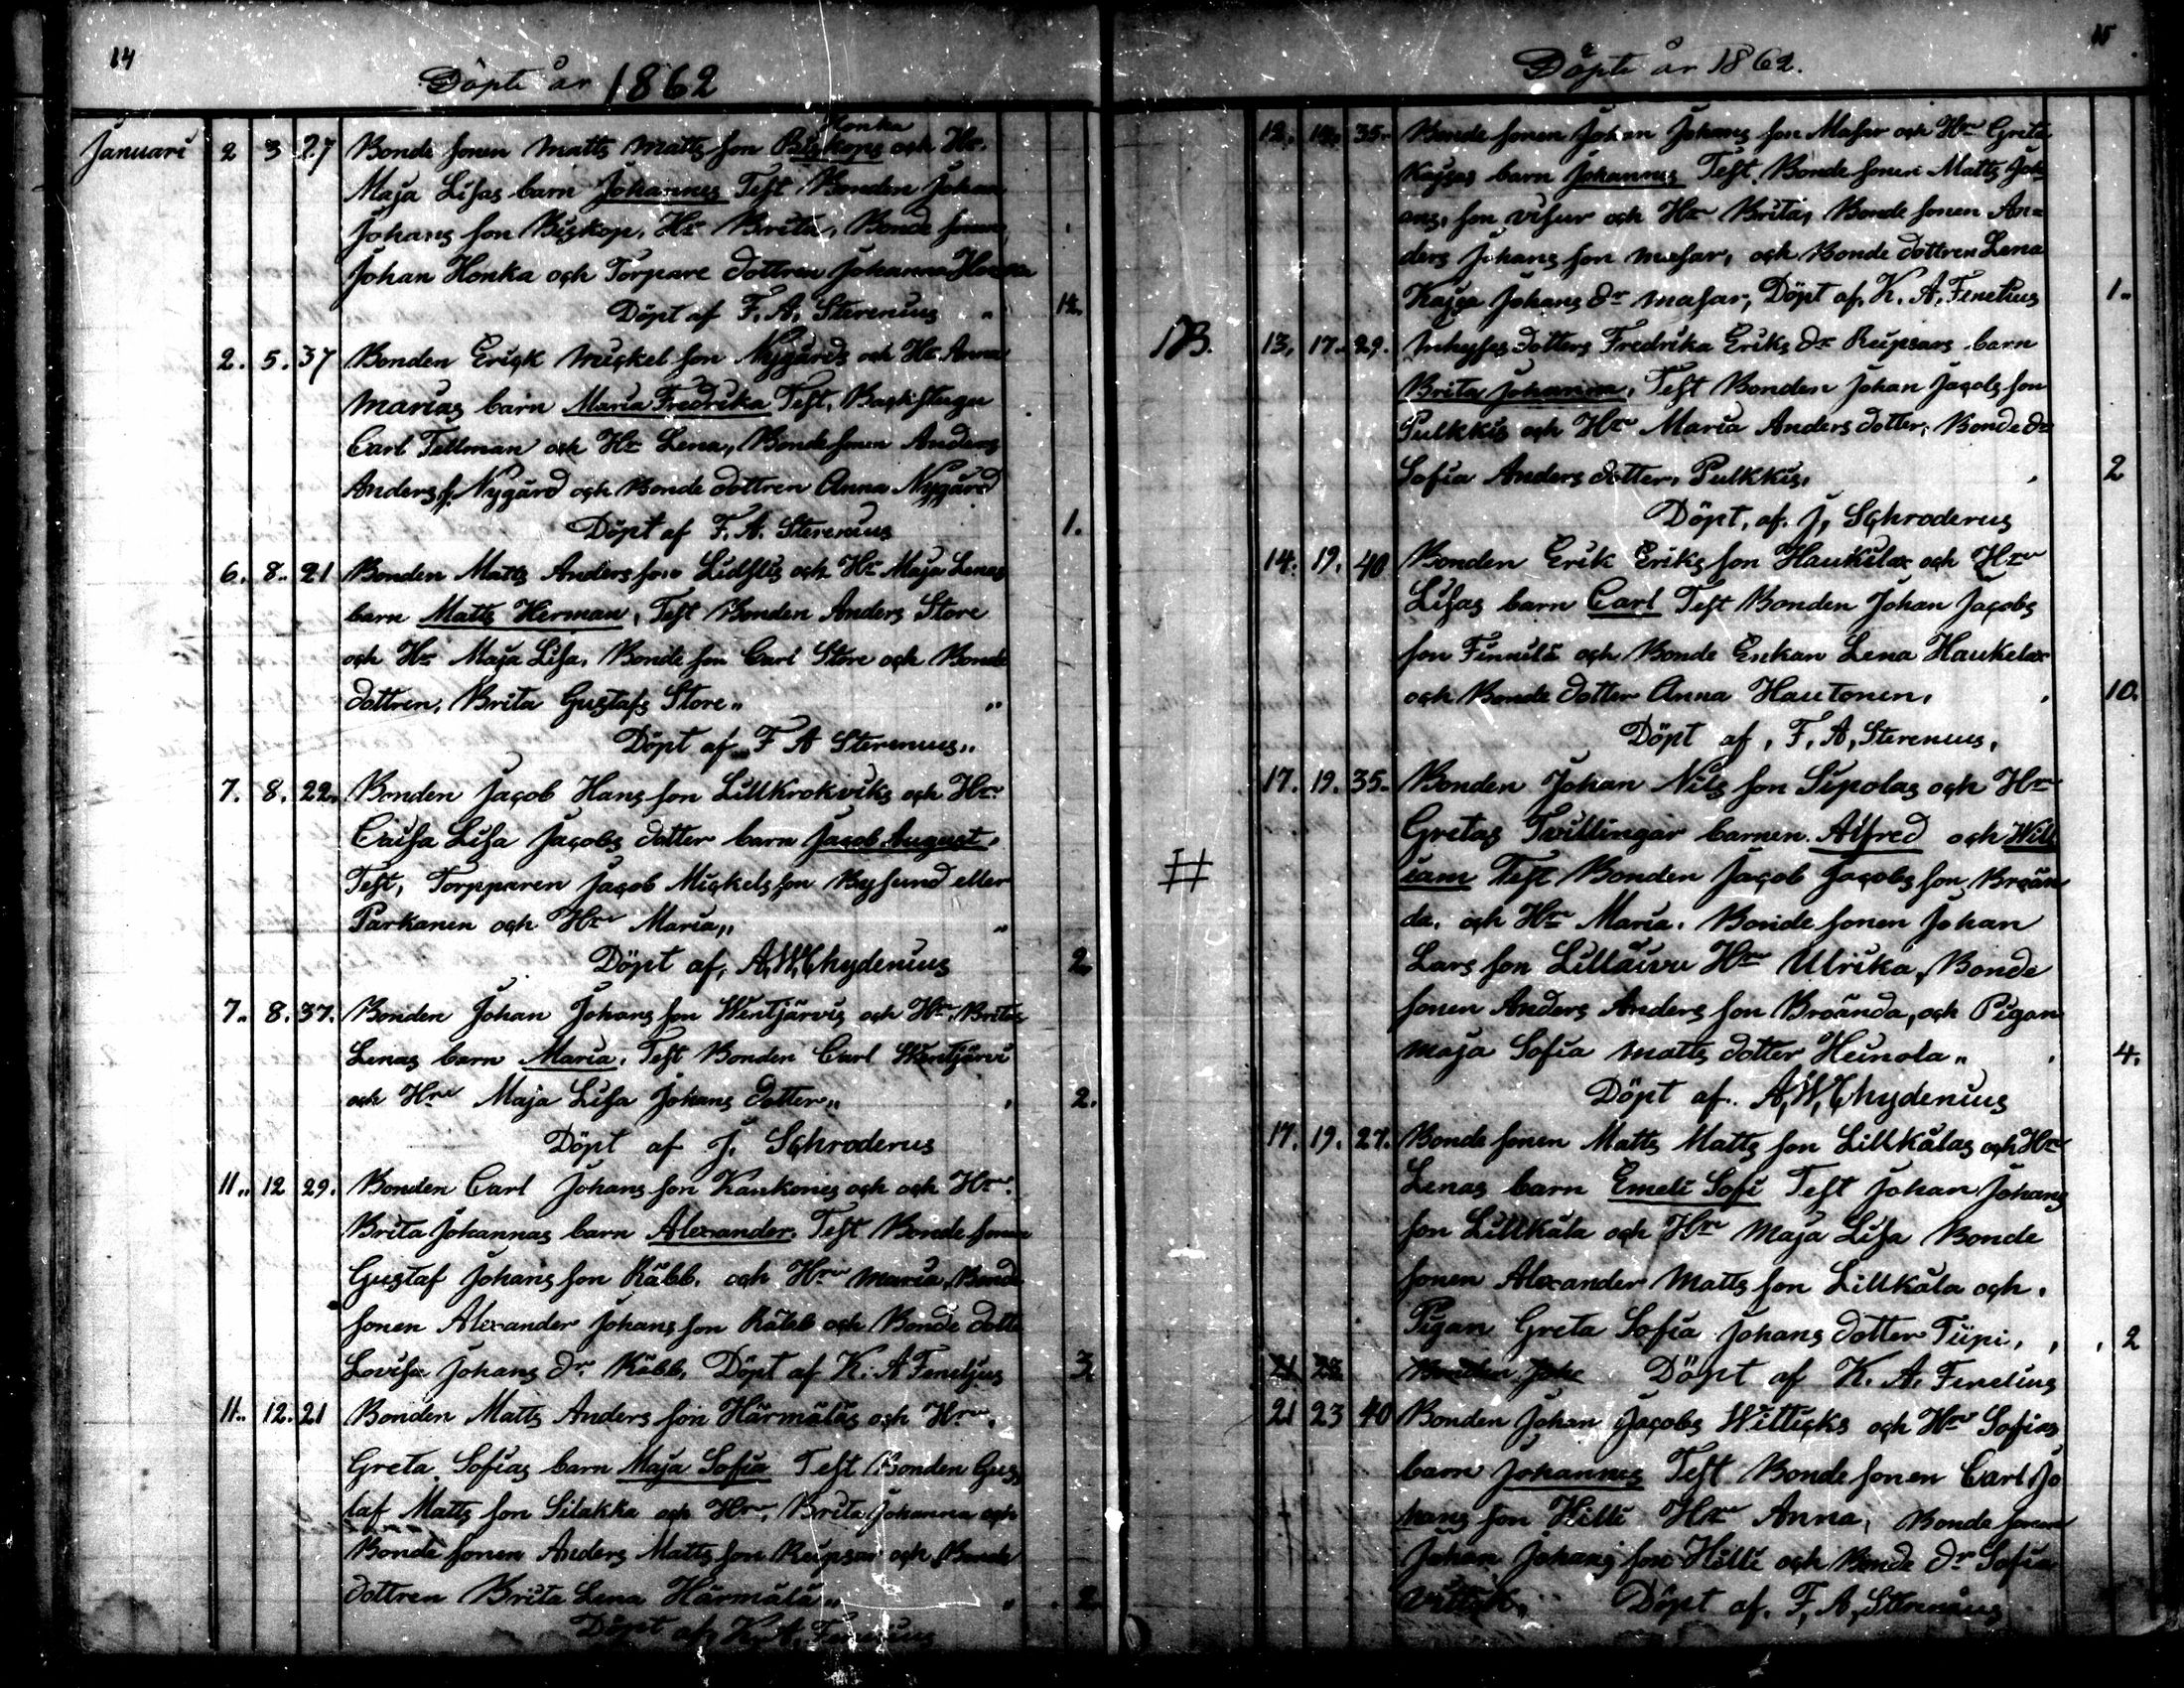 14
Döpte år 1862
Honka
Januari 2 3 27 Bonde sonen Matts Matts son Biskops och Hr.
Maja Lisas barn Johannes Test Bonden Johan
Johans son Biskop, Hr Brita, Bonde sonen
Johan Honka och Torpare dottren Johanna Honka
Döpt af F. A. Sterenius " 12.
2. 5. 37 Bonden Erick Mickel son Nygårds och Hr Anna
Marias barn Maria Fredrika Test,
Carl Tellman och Hr Lena, Bonde sonen Anders
Anders s. Nygård och Bonde dottren Anna Nygård
Döpt af F. A. Sterenius 1.
6. 8. 21 Bonden Matts Anders son och Hr Maja Lenas
barn Matts Herman, Test Bonden Anders Store
och Hr Maja Lisa, Bonde son Carl Store och Bonde
dottren, Brita Gustafs Store " "
Döpt af F A Sterenius "
7. 8. 22. Bonden Jacob Hans son Lillkrokviks och Hr
Caisa Lisa Jacobs dotter barn Jacob August.
Test, Torpparen Jacob Mickels son Bysund eller
Parkanen och Hr Maria " "
Döpt af, A, W, Chydenius 2
7. 8. 37. Bonden Johan Johans son Wintjärvis och Hr. Britas
Lenas barn Maria, Test Bonden Carl Wintjärvi
och Hr Maja Lisa Johans dotter " , 2.
Döpt af J. Schroderus
11. 12 29. Bonden Carl Johans son Kankonis och och Hr.
Brita Johannas barn Alexander. Test Bonde sonen
Gustaf Johans son Käbb. och Hr Maria, Bonde
sonen Alexander Johans son Käbb och Bonde dottr
Lovisa Johans dr Käbb, Döpt af K. A Fenelius 3
11. 12. 21 Bonden Matts Anders son Härmäläs och Hr.
Greta Sofias barn Maja Sofia Test Bonden Gus
taf Matts son Silakka och Hr, Brita Johanna och
Bonde sonen Anders Matts son Reipsar och Bonde
dottren Brita Lena Härmälä " " 2
Döpt af K. A. Fenelius
15
Döpte år 1862.
12. 14. 35. Bonde sonen Johan Johans son Masar och Hr Greta
Kajsas barn Johannes Test. Bonde sonen Matts Joh
ans, son Visur och Hr Brita, Bonde sonen An=
ders Johans son Masar, och Bonde dottren Lena
Kajsa Johans dr Masar, Döpt af, K. A, Fenelius 1.
13. 17. 29. Inhyses dotters Fredrika Eriks dr Reipsars barn
Brita Johanna, Test Bonden Johan Jacobs son
Pulkkis och Hr Maria Anders dotter, Bonde dr
Sofia Anders dotter, Pulkkis, , 2
Döpt, af. J, Schroderus
14. 19. 40 Bonden Erik Eriks son Haukilax och Hr
Lisas barn Carl Test Bonden Johan Jacobs
son Finnilä och Bonde Enkan Lena Haukelax
och Bonde dotter Anna Hautonen, , 10.
Döpt af, F, A, Sterenius,
17. 19. 35. Bonden Johan Nils son Sipolas och Hr
Gretas Tvillingar barnen. Alfred och Will
#
iam Test Bonden Jacob Jacobs son Broän
da, och Hr Maria. Bonde sonen Johan
Lars son Hr Ulrika, Bonde
sonen Anders Anders son Broända, och Pigan
Maja Sofia Matts dotter Heinola " , 4.
Döpt af. A, W, Chydenius
17. 19. 27. Bonde sonen Matts Matts son Lillkålas och Hr
Lenas barn Emeli Sofi Test Johan Johans
son Lillkåla och Hr Maja Lisa Bonde
sonen Alexander Matts son Lillkåla och.
Pigan Greta Sofia Johans dotter Tiipi, , , 2
Döpt af K. A. Fenelius
21 23 40 Bonden Johan Jacobs Witticks och Hr Sofias
barn Johannes Test Bonde sonen Carl Jo
hans son Hilli Hr Anna, Bonde sonen
Johan Johans son Hilli och Bonde dr Sofia
Vittick, Döpt af. F, A, Sterenius